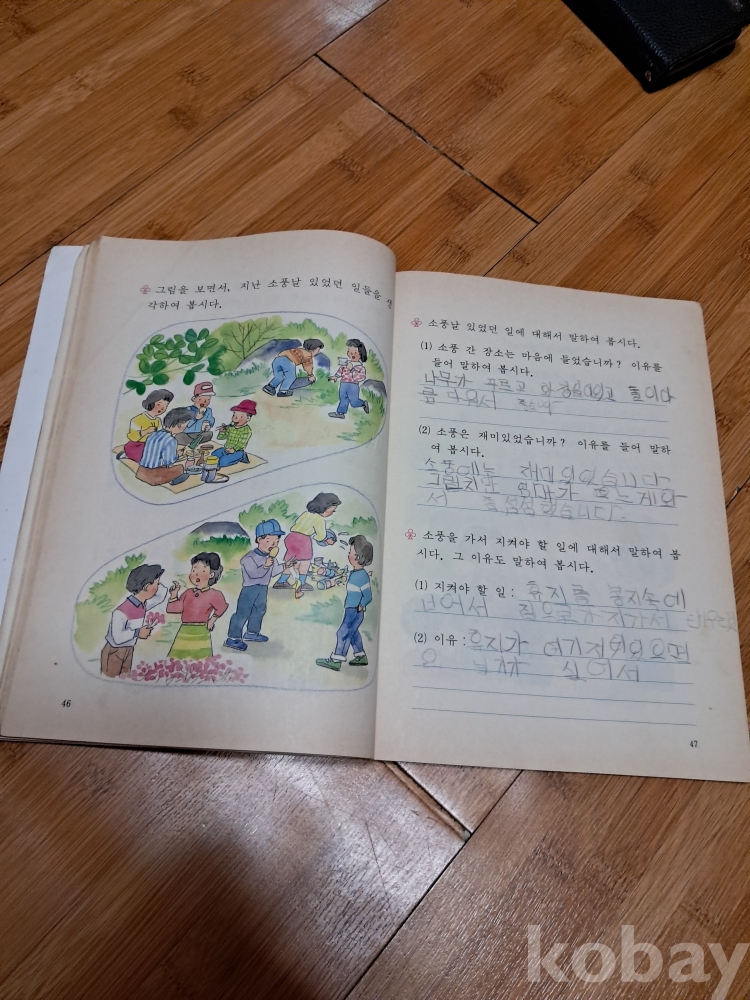 그림을 보면서, 지난 소풍날 있었던 일들을 생
각하여 봅시다.
46
소풍날 있었던 일에 대해서 말하여 봅시다.
(1) 소풍 간 장소는 마음에 들었습니까? 이유를
들어 말하여 봅시다.
나무가 푸르고 와
(2) 소풍은 재미있었습니까? 이유를 들어 말하
여 봅시다.
소풍에는 재미있었습니다
그렇치만
서
소풍을 가서 지켜야 할 일에 대해서 말하여 봅
시다. 그 이유도 말하여 봅시다.
(1) 지켜야 할 일: 휴지를 봉지속에
넣어서 집으로 가지가서
(2) 이유: 여기저기 있으면
싫어서
47
kobay